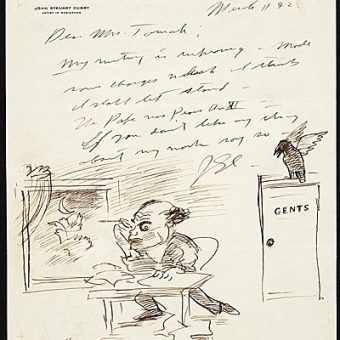 JOHN STEUART CURRY
ARTIST IN RESIDENCE
March 11 42
Dear Mrs.
My writing is improving – Made
some changes which I think
I shall let stand –
The Pope was Pious XI –
If you don't like any thing
about my work say so –
JSC
GENTS